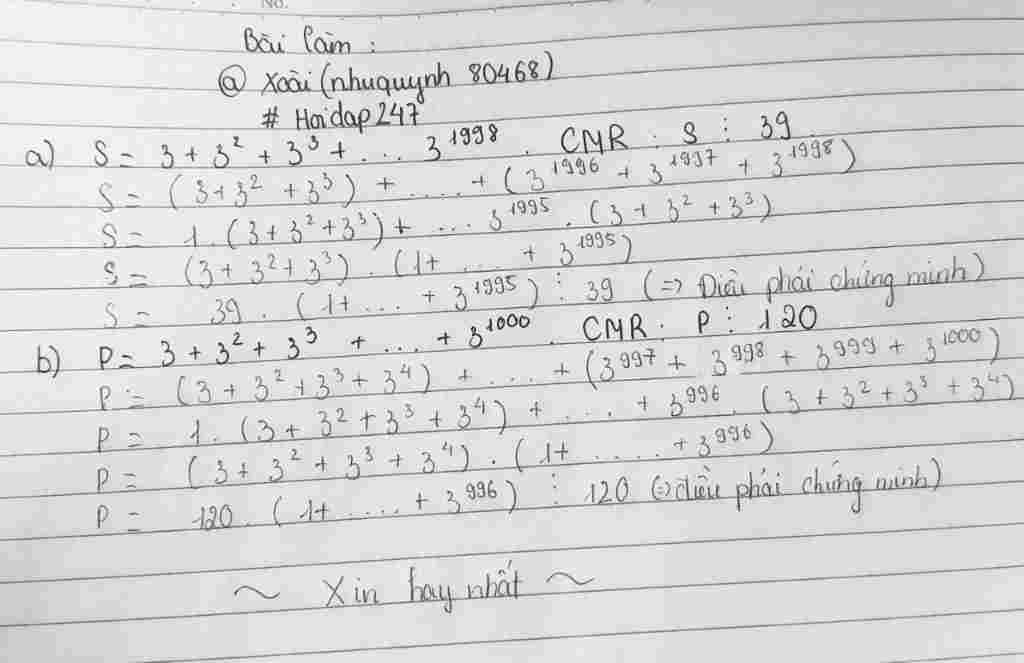 No.
Bài làm :
@ Xoài (nhuquynh 80468)
# Hoidap247
a) S = 3 + 3² + 3³ + ... 3¹⁹⁹⁸. CMR : S ⋮ 39.
S = (3 + 3² + 3³) + .... + (3¹⁹⁹⁶ + 3¹⁹⁹⁷ + 3¹⁹⁹⁸)
S = 1. (3 + 3² + 3³) + ... 3¹⁹⁹⁵. (3 + 3² + 3³)
S = (3 + 3² + 3³) . (1+ ... + 3¹⁹⁹⁵)
S = 39 . (1+ ... + 3¹⁹⁹⁵) ⋮ 39 (=> Điều phải chứng minh)
b) P = 3 + 3² + 3³ + ... + 3¹⁰⁰⁰. CMR. P ⋮ 120
P = (3 + 3² + 3³ + 3⁴) + .... + (3⁹⁹⁷ + 3⁹⁹⁸ + 3⁹⁹⁹ + 3¹⁰⁰⁰)
P = 1. (3 + 3² + 3³ + 3⁴) + .... + 3⁹⁹⁶. (3 + 3² + 3³ + 3⁴)
P = (3 + 3² + 3³ + 3⁴) . (1+ ..... + 3⁹⁹⁶)
P = 120. (1+ .... + 3⁹⁹⁶) ⋮ 120 (=> điều phải chứng minh)
~ Xin hay nhất ~